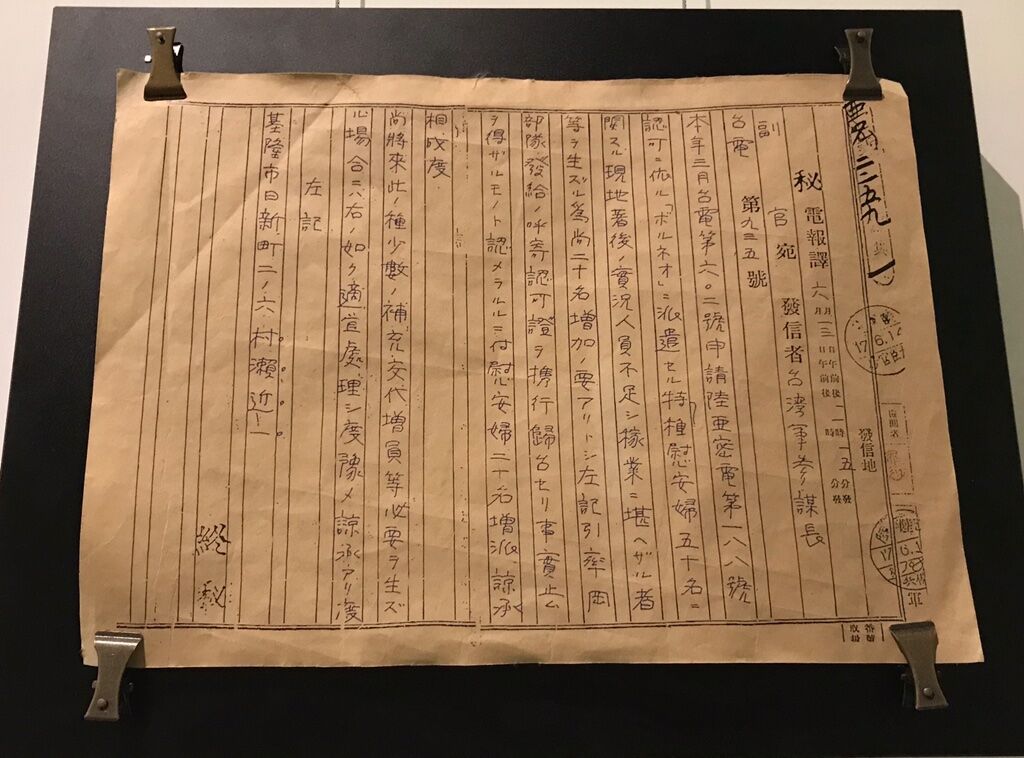 秘電報譯 六月一三日 二時一五分發
發信地
官宛 發信者台湾軍参謀長
副
台電 第九三五號
本年三月台電第六〇二號申請陸亜密電第一八八號
認可ニ依ル「ボルネオ」ニ派遣セル特種慰安婦五十名ニ
関スル現地著後ノ實況人員不足シ稼業ニ堪ヘザル者
等ヲ生ズル為尚二十名増加ノ要アリトシ左記引率岡
部隊發給ノ呼寄認可證ヲ携行帰台セリ事實止ム
ヲ得ザルモノト認メラルルニ付慰安婦二十名増派諒承
相成度
尚將來此ノ種少數ノ補充交代増員等必要ヲ生ズ
ル場合ニハ右ノ如ク適宜處理シ度豫メ諒承アリ度
左記
基隆市日新町二ノ六 村瀬近一
終
秘